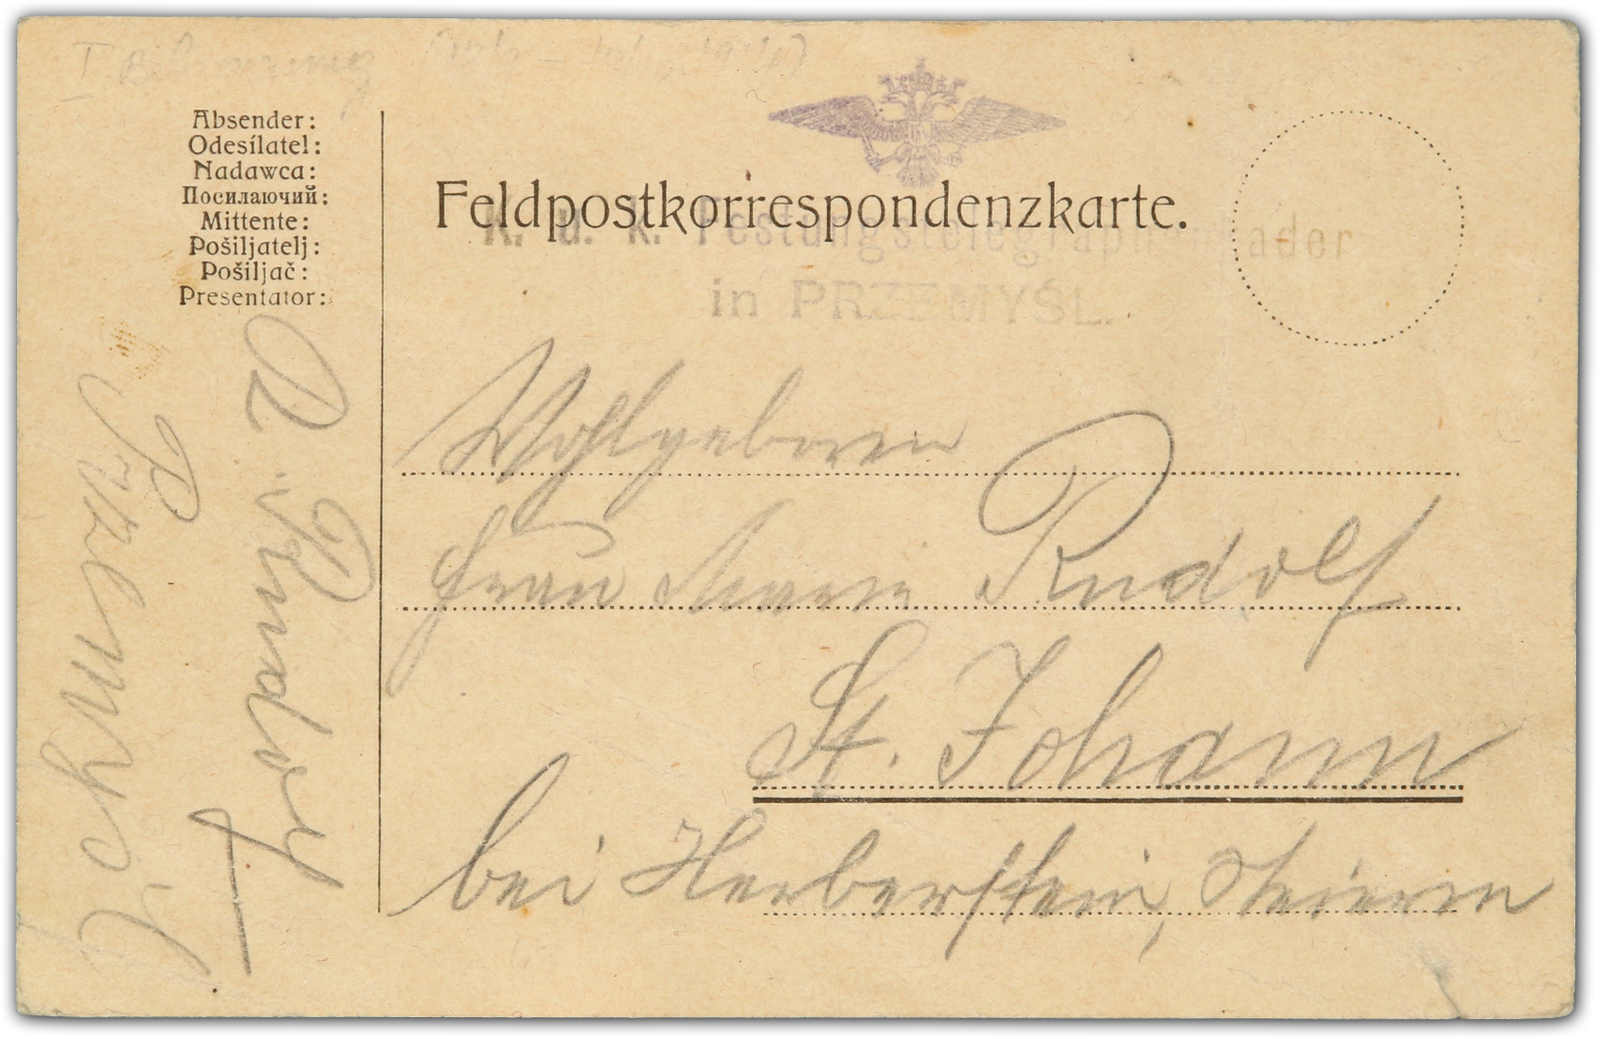 Absender:
Odesílatel:
Nadawca:
Посилаючий:
Mittente:
Pošiljatelj:
Pošiljač:
Presentator:
Rudolf
Przemyśl
Feldpostkorrespondenzkarte.
K. u. k. Festungstelegraphenkader
in PRZEMYŚL.
Wohlgeboren
Frau Marie Rudolf
St. Johann
bei Herberstein, Steierm